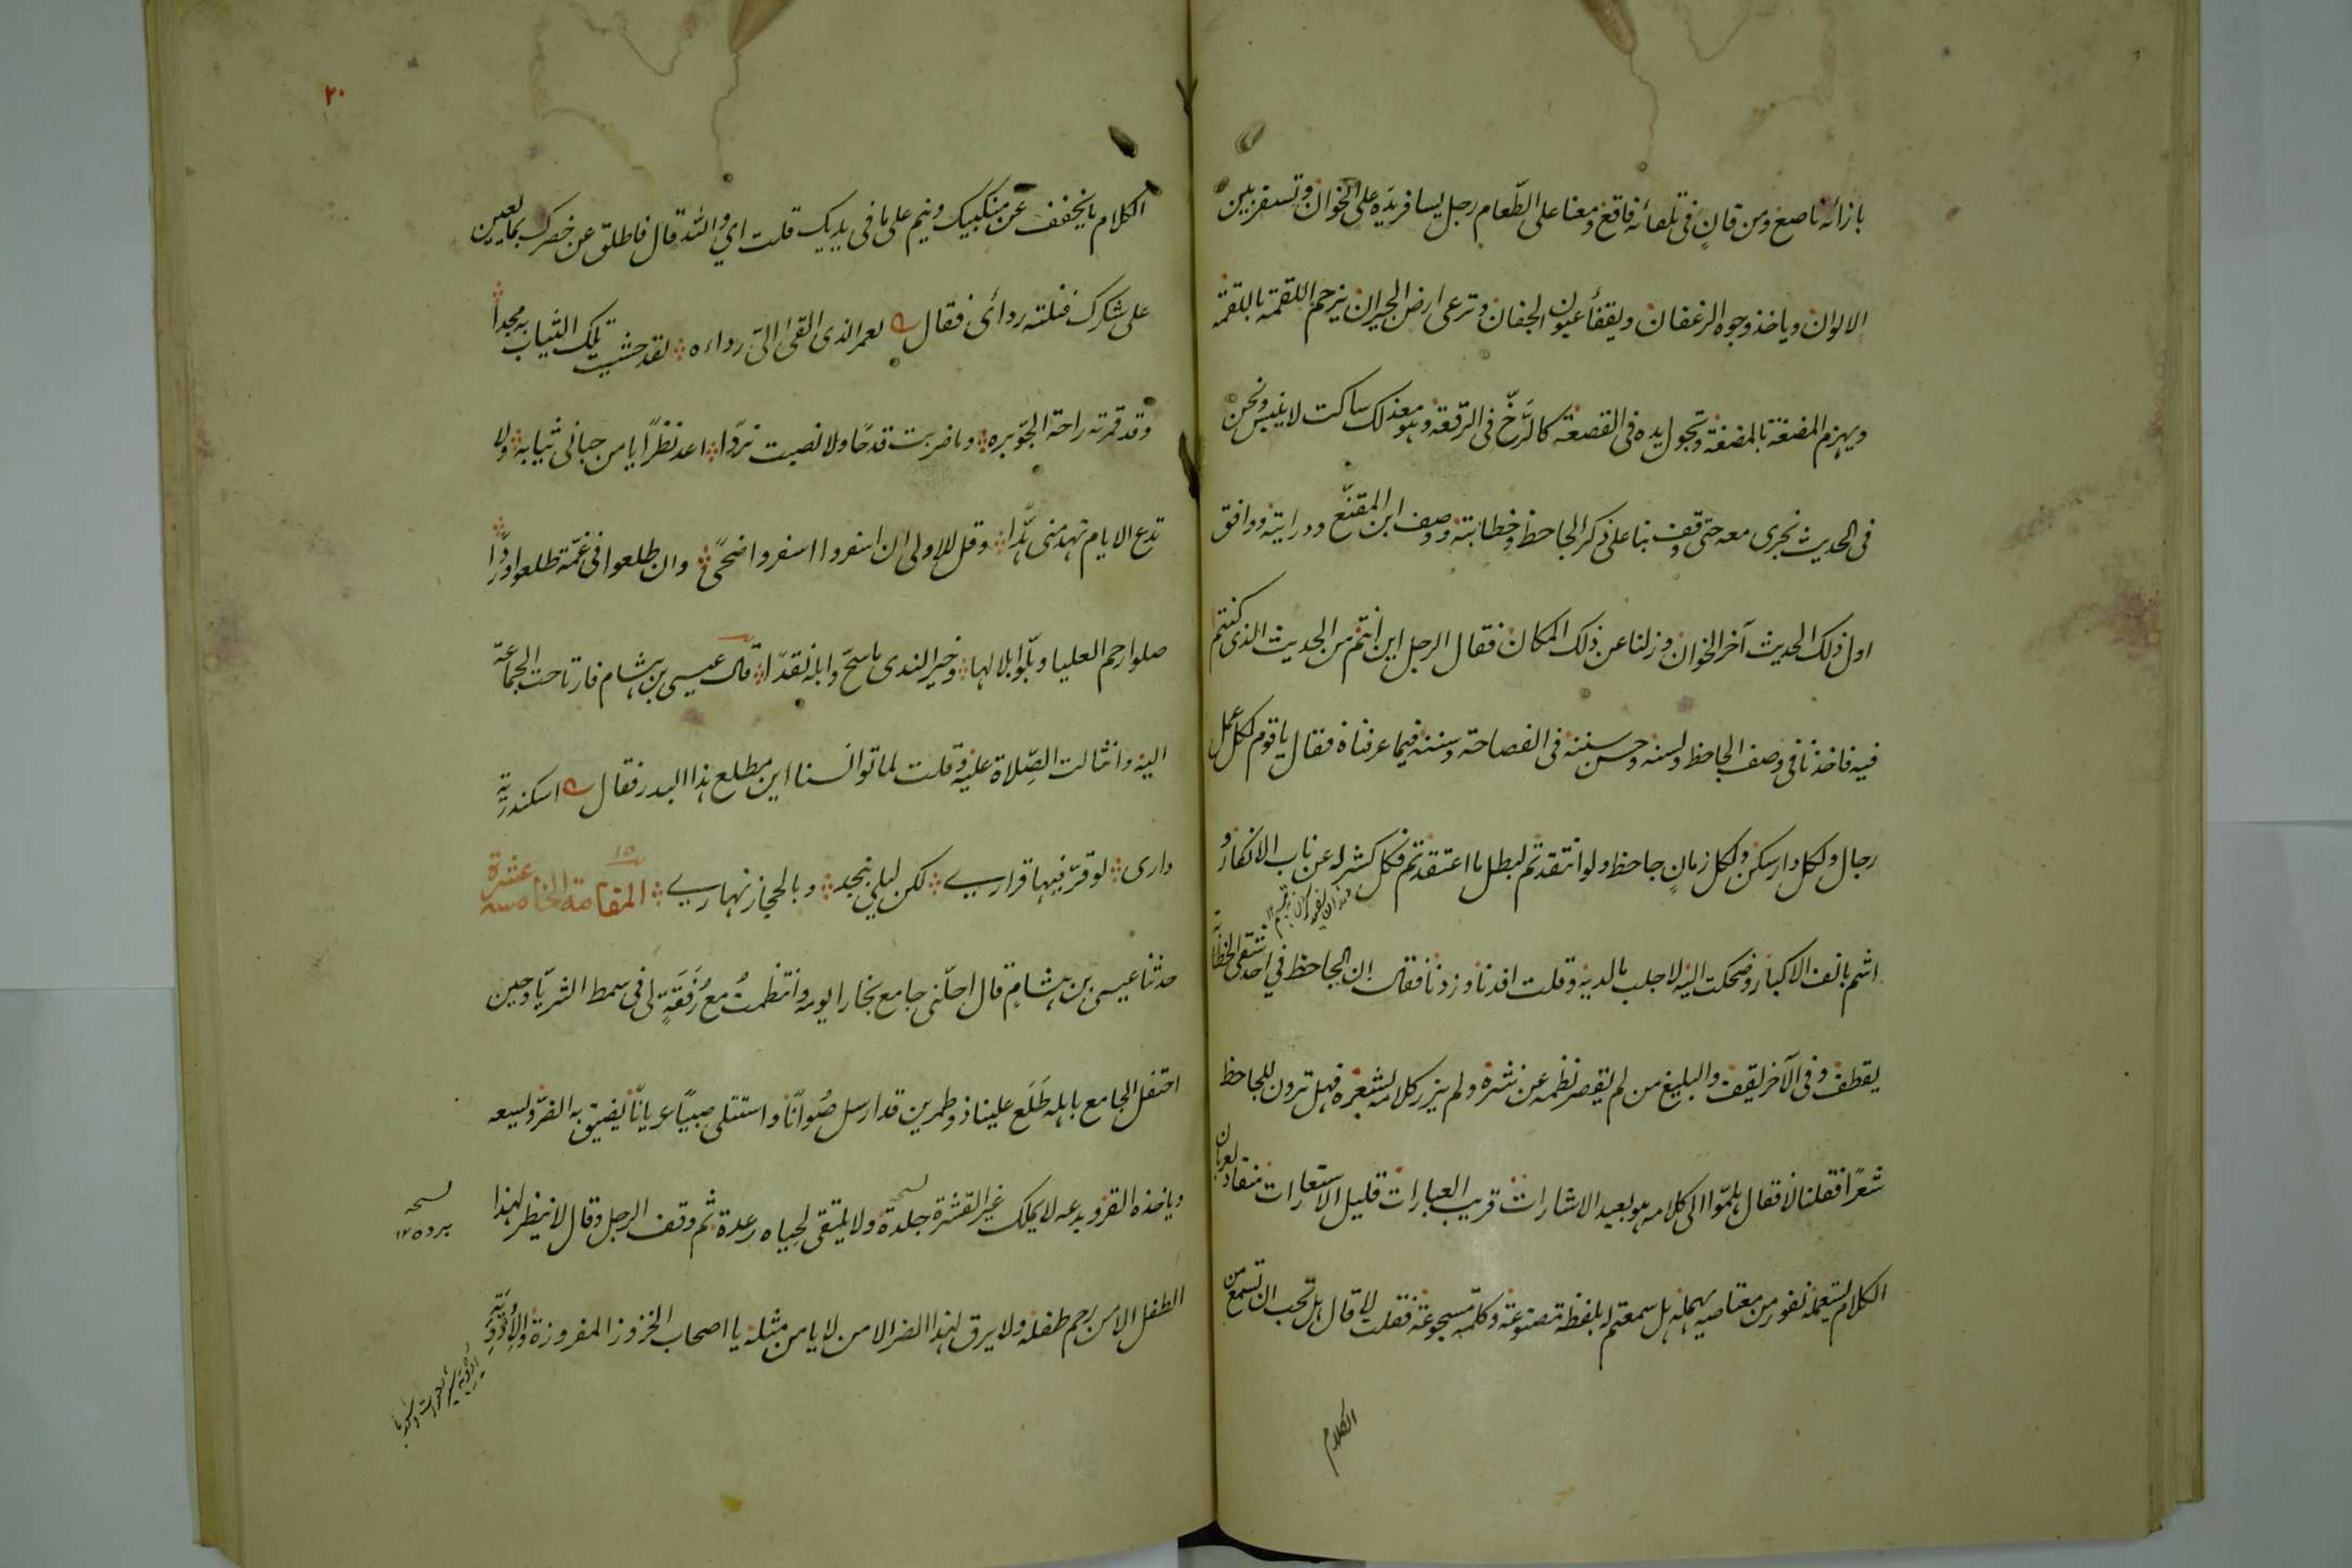 بازائه ناصع ومن قانٍ فى تلقائه فاقع ومعنا على الطّعام رجل يسافر يده على الخوان وتسفر بين
الالوان وياخذ وجوه الرغفان ويفقأ عيون الجفان وترعى ارض الجيران يزحم اللقمة باللقمة
ويهزم المضغة بالمضغة وتجول يده فى القصعة كالرّخّ فى الرّقعة وهو مع ذلك ساكت لا ينبس ونحن
فى الحديث نجرى معه حتى وقف بنا على ذكر الجاحظ وخطابته ووصف ابن المقفّع ودرايته ووافق
اول ذلك الحديث آخر الخوان وزلنا عن ذلك المكان فقال الرجل اين انتم من الحديث الذى كنتم
فيه فاخذنا فى وصف الجاحظ ولسنه وحسن سننه فى الفصاحة وسننه فيما عرفناه فقال يا قوم لكل عمل
رجال ولكل دار سكن ولكل زمانٍ جاحظ ولو انتقدتم لبطل ما اعتقدتم فكل كشر له عن ناب الانكار و
اشم بانف الاكبار وضحكت اليه لاجلب ما لديه وقلت افدنا وزدنا فقال ان الجاحظ في احد شقى الخطابة
يقطف وفى الآخر يقف والبليغ من لم يقصر نظمه عن نثره ولم يزر كلامه بشعره فهل ترون للجاحظ
شعرًا فقلنا لا فقال هلمّوا الى كلامه هو بعيد الاشارات قريب العبارات قليل الاستعارات منقاد لعريان
الكلام يستعمله نفور من معتاصيه يهمله هل سمعتم له بلفظة مصنوعة وكلمة مسجوعة فقلت لا قال هل تحب ان تسمع من
الكلام
٢٠
الكلام ما يخفف عن منكبيك وينم على ما فى يديك قلت اي والله قال فاطلق عن خصرك بما يعين
على شكرك فنلته ردائى فقال لعمر الذى القى الىّ رداءه لقد حشيت تلك الثياب به مجدا
وقد قمرته راحة الجود بره وما ضربت قدحًا ولا نصبت نردًا اعد نظرًا يا من حبانى ثيابه ولا
تدع الايام تهدمنى هدّا وقل للاولى ان اسفروا اسفروا ضحًى وان طلعوا فى غمّة طلعوا وردًا
صلوا رحم العليا وبلّوا بلالها وخير الندى ما سحّ وابله نقدًا قال عيسى بن هشام فارتاحت الجماعة
اليه وانثالت الصِّلاة عليه وقلت لما توانسنا اين مطلع هذا البدر فقال اسكندريّة
دارى لو قرّ فيها قرارى لكن ليلى بنجد وبالحجاز نهارى المقامة الخامسة عشرة
١٥
حدثنا عيسى بن هشامٍ قال احلّنى جامع بخارا يوم وانتظمتُ مع رُفَقَةٍ لى فى سمط الثريّا وحين
احتفل الجامع باهله طَلَع علينا ذو طمرين قد ارسل صُوانًا واستتلى صبيًا عريانًا يضيق به الضرّ وسعه
وياخذه القر ويدعه لا يملك غير القشرة جلدة ولا يلتقى لحياه رعدة ثم وقف الرجل وقال لا ينظر لهذا
الطفل الا من رحم طفله ولا يرق لهذا الضر الا من لا يامن مثله يا اصحاب الخزوز المفروزة والاُرْدِيَةِ
نسخه